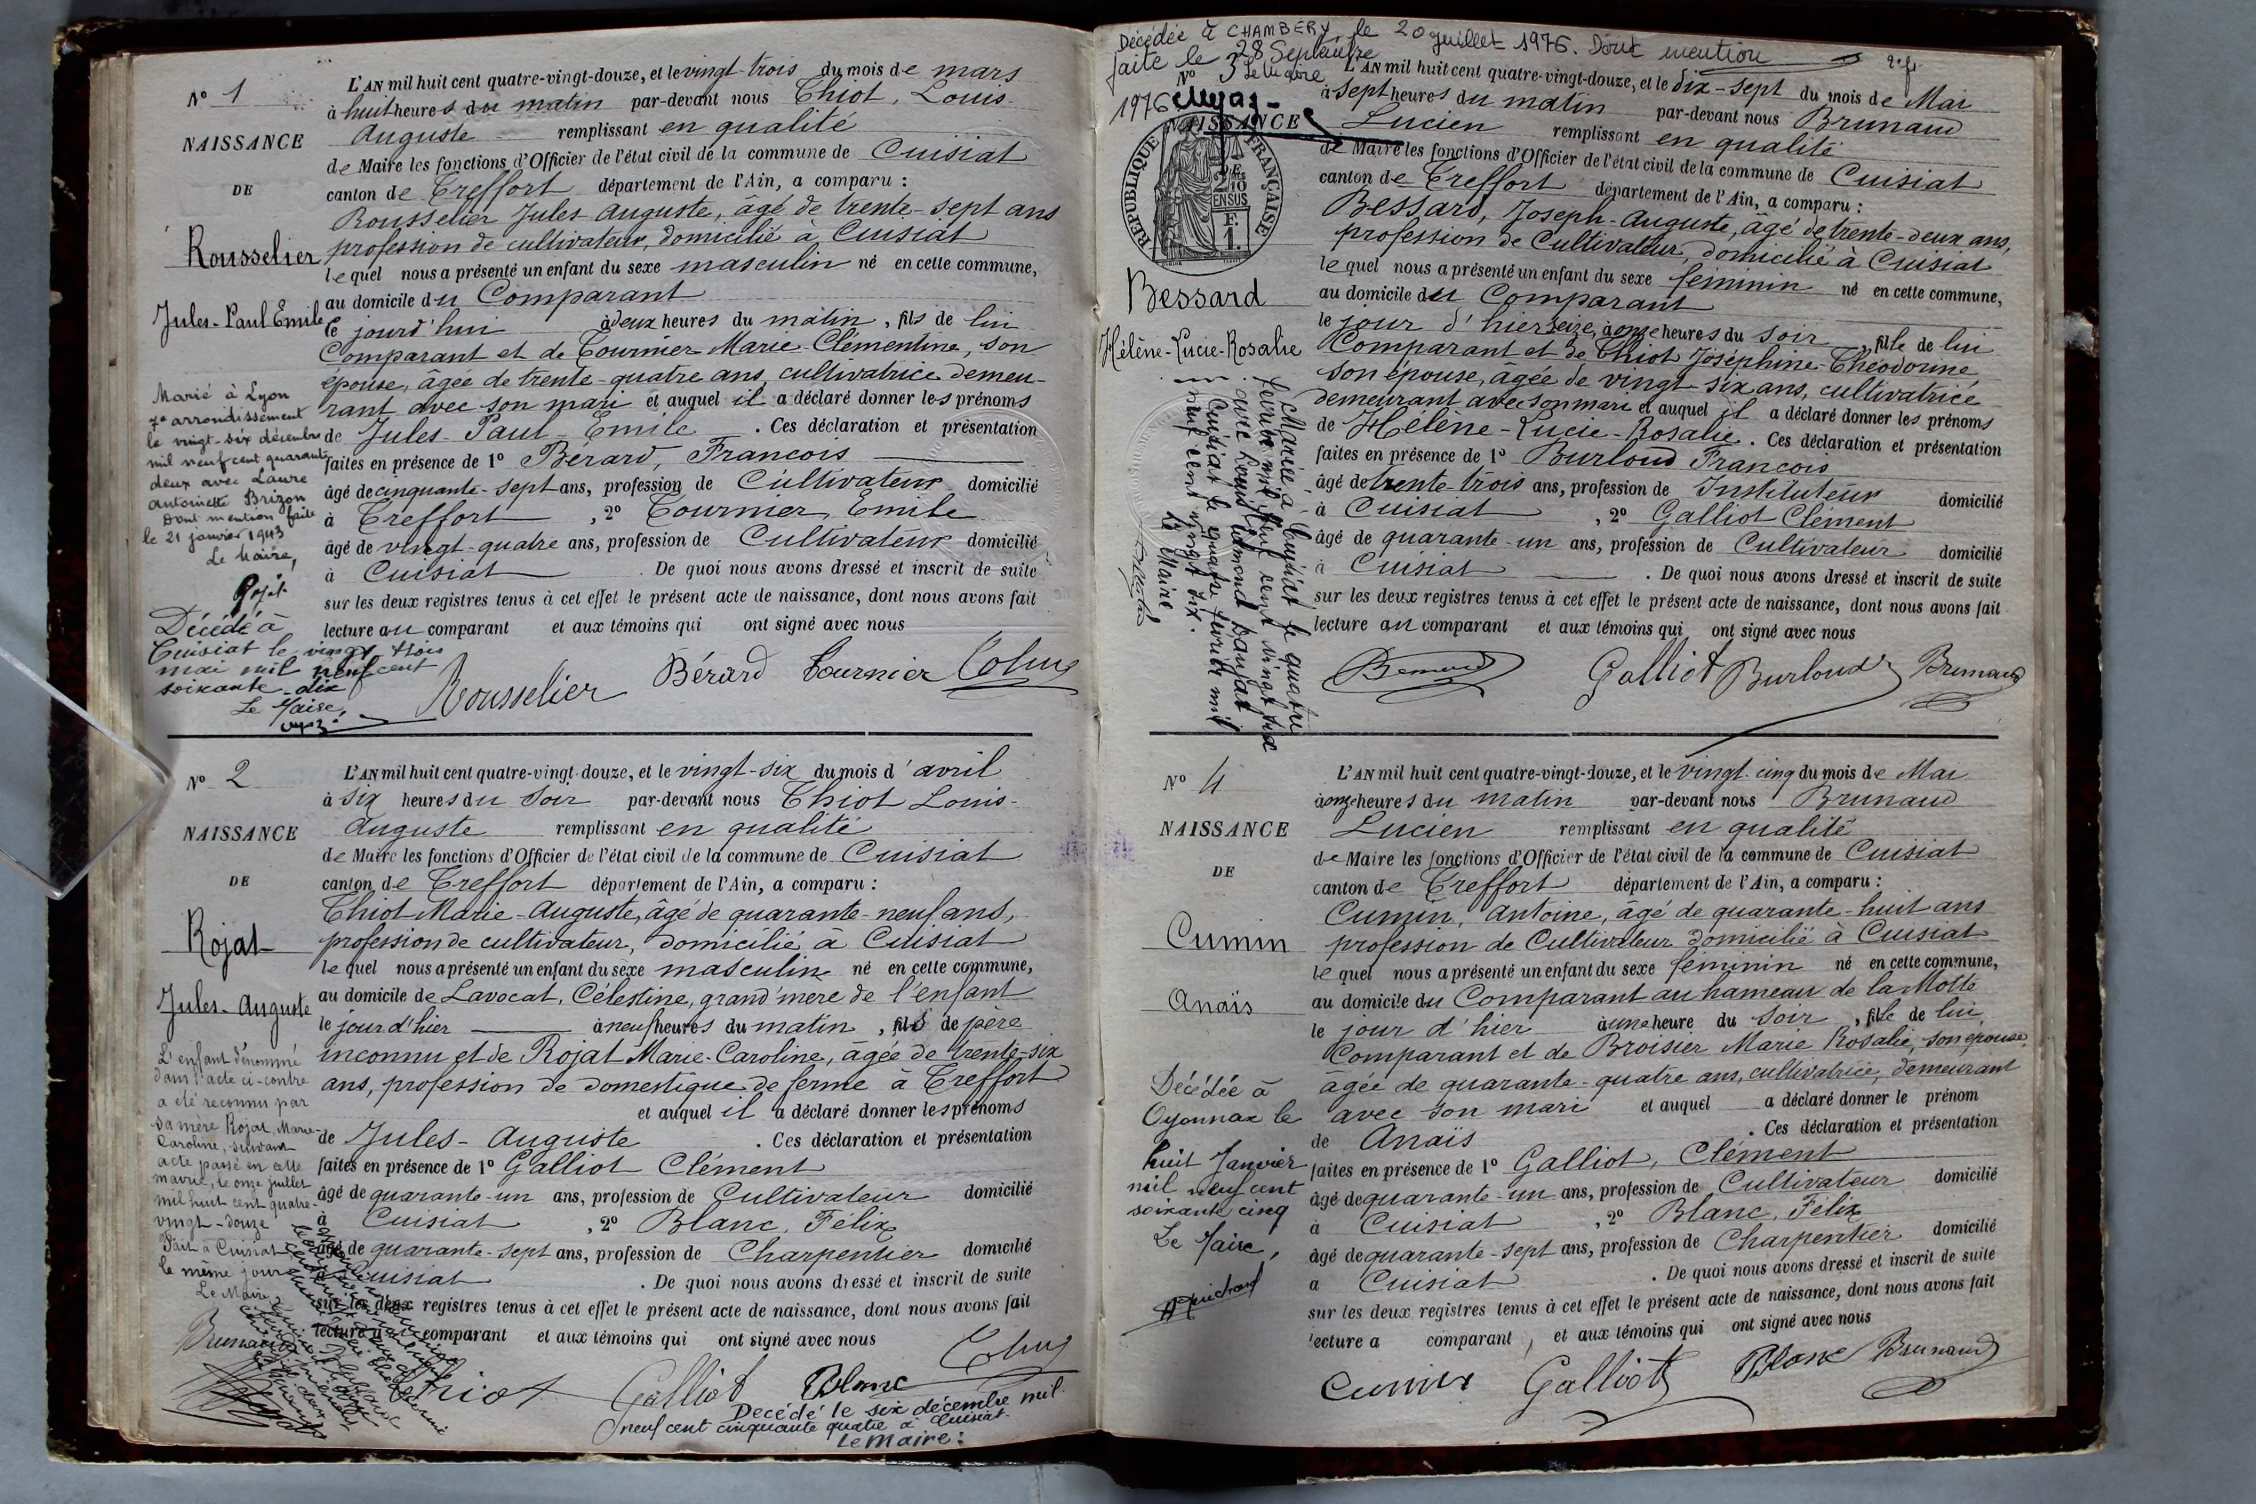 N° 1
NAISSANCE
DE
Rousselier
Jules-Paul Emile
Marié à Lyon
7e arrondissement
le vingt-six décembre
mil neuf cent quarante
deux avec Laure
Antoinette Brizon
Dont mention faite
le 21 janvier 1943
Le Maire,
Décédé à
Cuisiat le vingt trois
mai mil neuf cent
soixante-dix
Le Maire,
L'AN mil huit cent quatre-vingt-douze, et le vingt-trois du mois de mars
à huit heures du matin par-devant nous Thiot, Louis-
Auguste remplissant en qualité
de Maire les fonctions d'Officier de l'état civil de la commune de Cuisiat
canton de Treffort département de l'Ain, a comparu :
Rousselier Jules Auguste, âgé de trente-sept ans
profession de cultivateur, domicilié à Cuisiat
lequel nous a présenté un enfant du sexe masculin né en cette commune,
au domicile du Comparant
ce jourd'hui à deux heures du matin, fils de lui
Comparant et de Tournier Marie-Clémentine, son
épouse, âgée de trente-quatre ans, cultivatrice demeu-
rant avec son mari et auquel il a déclaré donner les prénoms
de Jules-Paul-Emile. Ces déclaration et présentation
faites en présence de 1° Bérard, François
âgé de cinquante-sept ans, profession de Cultivateur domicilié
à Treffort, 2° Tournier, Emile
âgé de vingt-quatre ans, profession de Cultivateur domicilié
à Cuisiat. De quoi nous avons dressé et inscrit de suite
sur les deux registres tenus à cet effet le présent acte de naissance, dont nous avons fait
lecture au comparant et aux témoins qui ont signé avec nous
Rousselier Bérard Tournier
N° 2
NAISSANCE
DE
Rojat
Jules-Auguste
L'enfant dénommé
dans l'acte ci-contre
a été reconnu par
sa mère Rojat, Marie-
Caroline, suivant
acte passé en cette
mairie, le onze juillet
mil huit cent quatre-
vingt-douze
Fait à Cuisiat
le même jour
Le Maire
Brunaud
L'AN mil huit cent quatre-vingt-douze, et le vingt-six du mois d'avril
à six heures du soir par-devant nous Thiot Louis-
Auguste remplissant en qualité
de Maire les fonctions d'Officier de l'état civil de la commune de Cuisiat
canton de Treffort département de l'Ain, a comparu :
Thiot Marie-Auguste, âgé de quarante-neuf ans,
profession de cultivateur, domicilié à Cuisiat
lequel nous a présenté un enfant du sexe masculin né en cette commune,
au domicile de Lavocat, Célestine, grand'mère de l'enfant
le jour d'hier à neuf heures du matin, fils de père
inconnu et de Rojat Marie-Caroline, âgée de trente-six
ans, profession de domestique de ferme à Treffort
et auquel il a déclaré donner les prénoms
de Jules-Auguste. Ces déclaration et présentation
faites en présence de 1° Galliot Clément
âgé de quarante-un ans, profession de Cultivateur domicilié
à Cuisiat, 2° Blanc, Félix
âgé de quarante-sept ans, profession de Charpentier domicilié
à Cuisiat. De quoi nous avons dressé et inscrit de suite
sur les deux registres tenus à cet effet le présent acte de naissance, dont nous avons fait
lecture au comparant et aux témoins qui ont signé avec nous
Thiot Galliot Blanc
Décédé le six décembre mil
neuf cent cinquante quatre à Cuisiat
Le Maire :
Décédée à CHAMBÉRY, le 20 juillet 1976. Dont mention
faite le 28 Septembre
1976 Le Maire
N° 3
NAISSANCE
RÉPUBLIQUE FRANÇAISE
2/10
EN SUS
F.
1.
Bessard
Hélène-Lucie-Rosalie
Mariée à Cuisiat le quatre
février mil neuf cent vingt six
avec Louis Edmond
Cuisiat le quatre février mil
neuf cent vingt six.
Le Maire
L'AN mil huit cent quatre-vingt-douze, et le dix-sept du mois de Mai
à sept heures du matin par-devant nous Brunaud
Lucien remplissant en qualité
de Maire les fonctions d'Officier de l'état civil de la commune de Cuisiat
canton de Treffort département de l'Ain, a comparu :
Bessard, Joseph-Auguste, âgé de trente-deux ans,
profession de Cultivateur, domicilié à Cuisiat
lequel nous a présenté un enfant du sexe féminin né en cette commune,
au domicile du Comparant
le jour d'hier seize, à onze heures du soir, fille de lui
Comparant et de Thiot Joséphine-Théodorine
son épouse, âgée de vingt-six ans, cultivatrice
demeurant avec son mari et auquel il a déclaré donner les prénoms
de Hélène-Lucie-Rosalie. Ces déclaration et présentation
faites en présence de 1° Burloud François
âgé de trente-trois ans, profession de Instituteur domicilié
à Cuisiat, 2° Galliot Clément
âgé de quarante-un ans, profession de Cultivateur domicilié
à Cuisiat. De quoi nous avons dressé et inscrit de suite
sur les deux registres tenus à cet effet le présent acte de naissance, dont nous avons fait
lecture au comparant et aux témoins qui ont signé avec nous
Galliot Burloud Brunaud
N° 4
NAISSANCE
DE
Cumin
Anaïs
Décédée à
Oyonnax le
huit Janvier
mil neuf cent
soixante cinq
Le Maire,
L'AN mil huit cent quatre-vingt-douze, et le vingt-cinq du mois de Mai
à onze heures du matin par-devant nous Brunaud
Lucien remplissant en qualité
de Maire les fonctions d'Officier de l'état civil de la commune de Cuisiat
canton de Treffort département de l'Ain, a comparu :
Cumin, Antoine, âgé de quarante-huit ans
profession de Cultivateur domicilié à Cuisiat
lequel nous a présenté un enfant du sexe féminin né en cette commune,
au domicile du Comparant au hameau de la Motte
le jour d'hier à une heure du soir, fille de lui
Comparant et de Broisier Marie Rosalie, son épouse,
âgée de quarante-quatre ans, cultivatrice, demeurant
avec son mari et auquel a déclaré donner le prénom
de Anaïs. Ces déclaration et présentation
faites en présence de 1° Galliot, Clément
âgé de quarante-un ans, profession de Cultivateur domicilié
à Cuisiat, 2° Blanc, Félix
âgé de quarante-sept ans, profession de Charpentier domicilié
a Cuisiat. De quoi nous avons dressé et inscrit de suite
sur les deux registres tenus à cet effet le présent acte de naissance, dont nous avons fait
lecture a comparant, et aux témoins qui ont signé avec nous
Cumin Galliot Blanc Brunaud